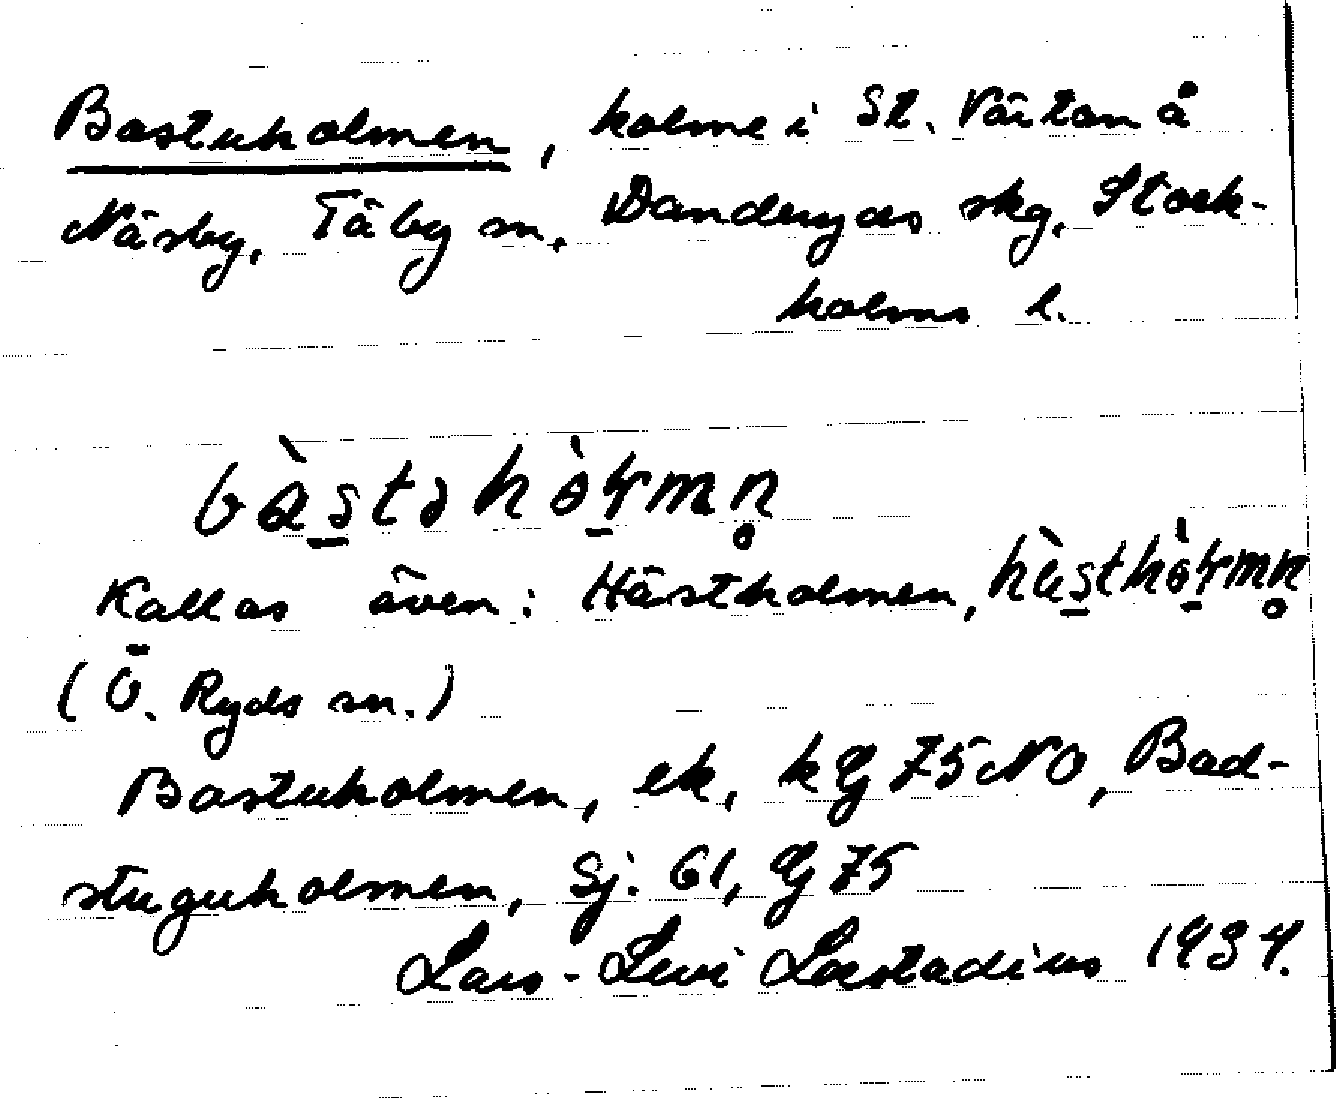 Bastuholmen, holme i St. Värtan å
Näsby, Täby sn, Danderyds skg, Stock-
holms l.
bàstəhòɬmn̥
Kallas även: Hästholmen, hä̀sthòɬmn̥
(Ö. Ryds sn.)
Bastuholmen, ek, kgj 75 NO, Bad-
stuguholmen, Sj. 61, gj 75
Lars-Levi Læstadius 1934.